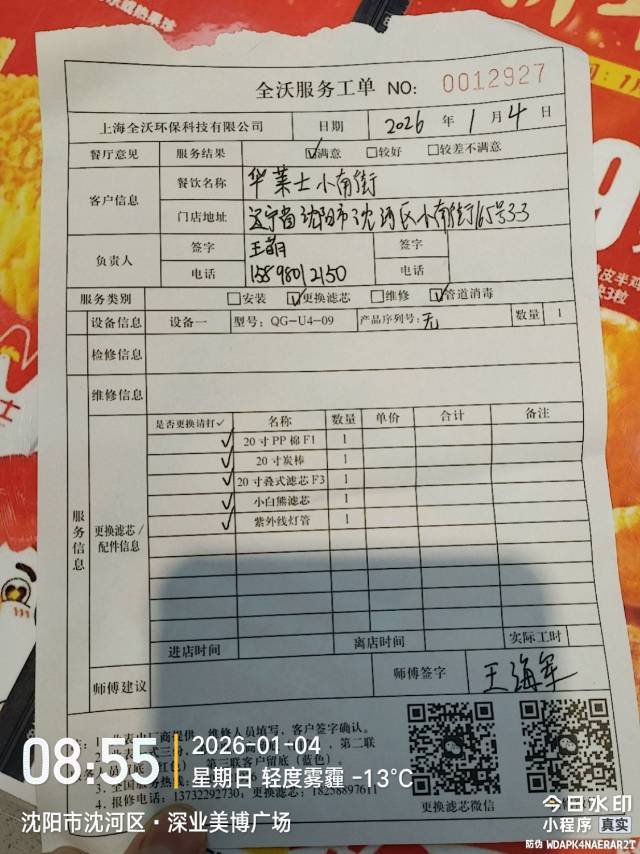 全沃服务工单 NO: 0012927
上海全沃环保科技有限公司 日期 2026 年 1 月 4 日
餐厅意见 服务结果 ☑满意 □较好 □较差不满意
客户信息 餐饮名称 华莱士小南街
门店地址 辽宁省沈阳市沈河区小南街165号3-3
负责人 签字 王萌 签字
电话 15898012150 电话
服务类别 □安装 ☑更换滤芯 □维修 ☑管道消毒
设备信息 设备一 型号: QG-U4-09 产品序列号: 无 数量 1
检修信息
维修信息
服务信息
更换滤芯/配件信息
是否更换请打✓ 名称 数量 单价 合计 备注
✓ 20寸PP棉F1 1
✓ 20寸炭棒 1
✓ 20寸叠式滤芯F3 1
✓ 小白熊滤芯 1
✓ 紫外线灯管 1
进店时间 离店时间 实际工时
师傅建议 师傅签字 王海军
维修人员填写，客户签字确认。
第二联
第三联客户留底（蓝色）。
3. 全国服务热
4. 报修电话: 13732292730, 更换滤芯: 18258897611
更换滤芯微信
08:55
2026-01-04
星期日 轻度雾霾 -13℃
沈阳市沈河区·深业美博广场
今日水印
小程序 真实
防伪 WDAPK4NAERAR2T